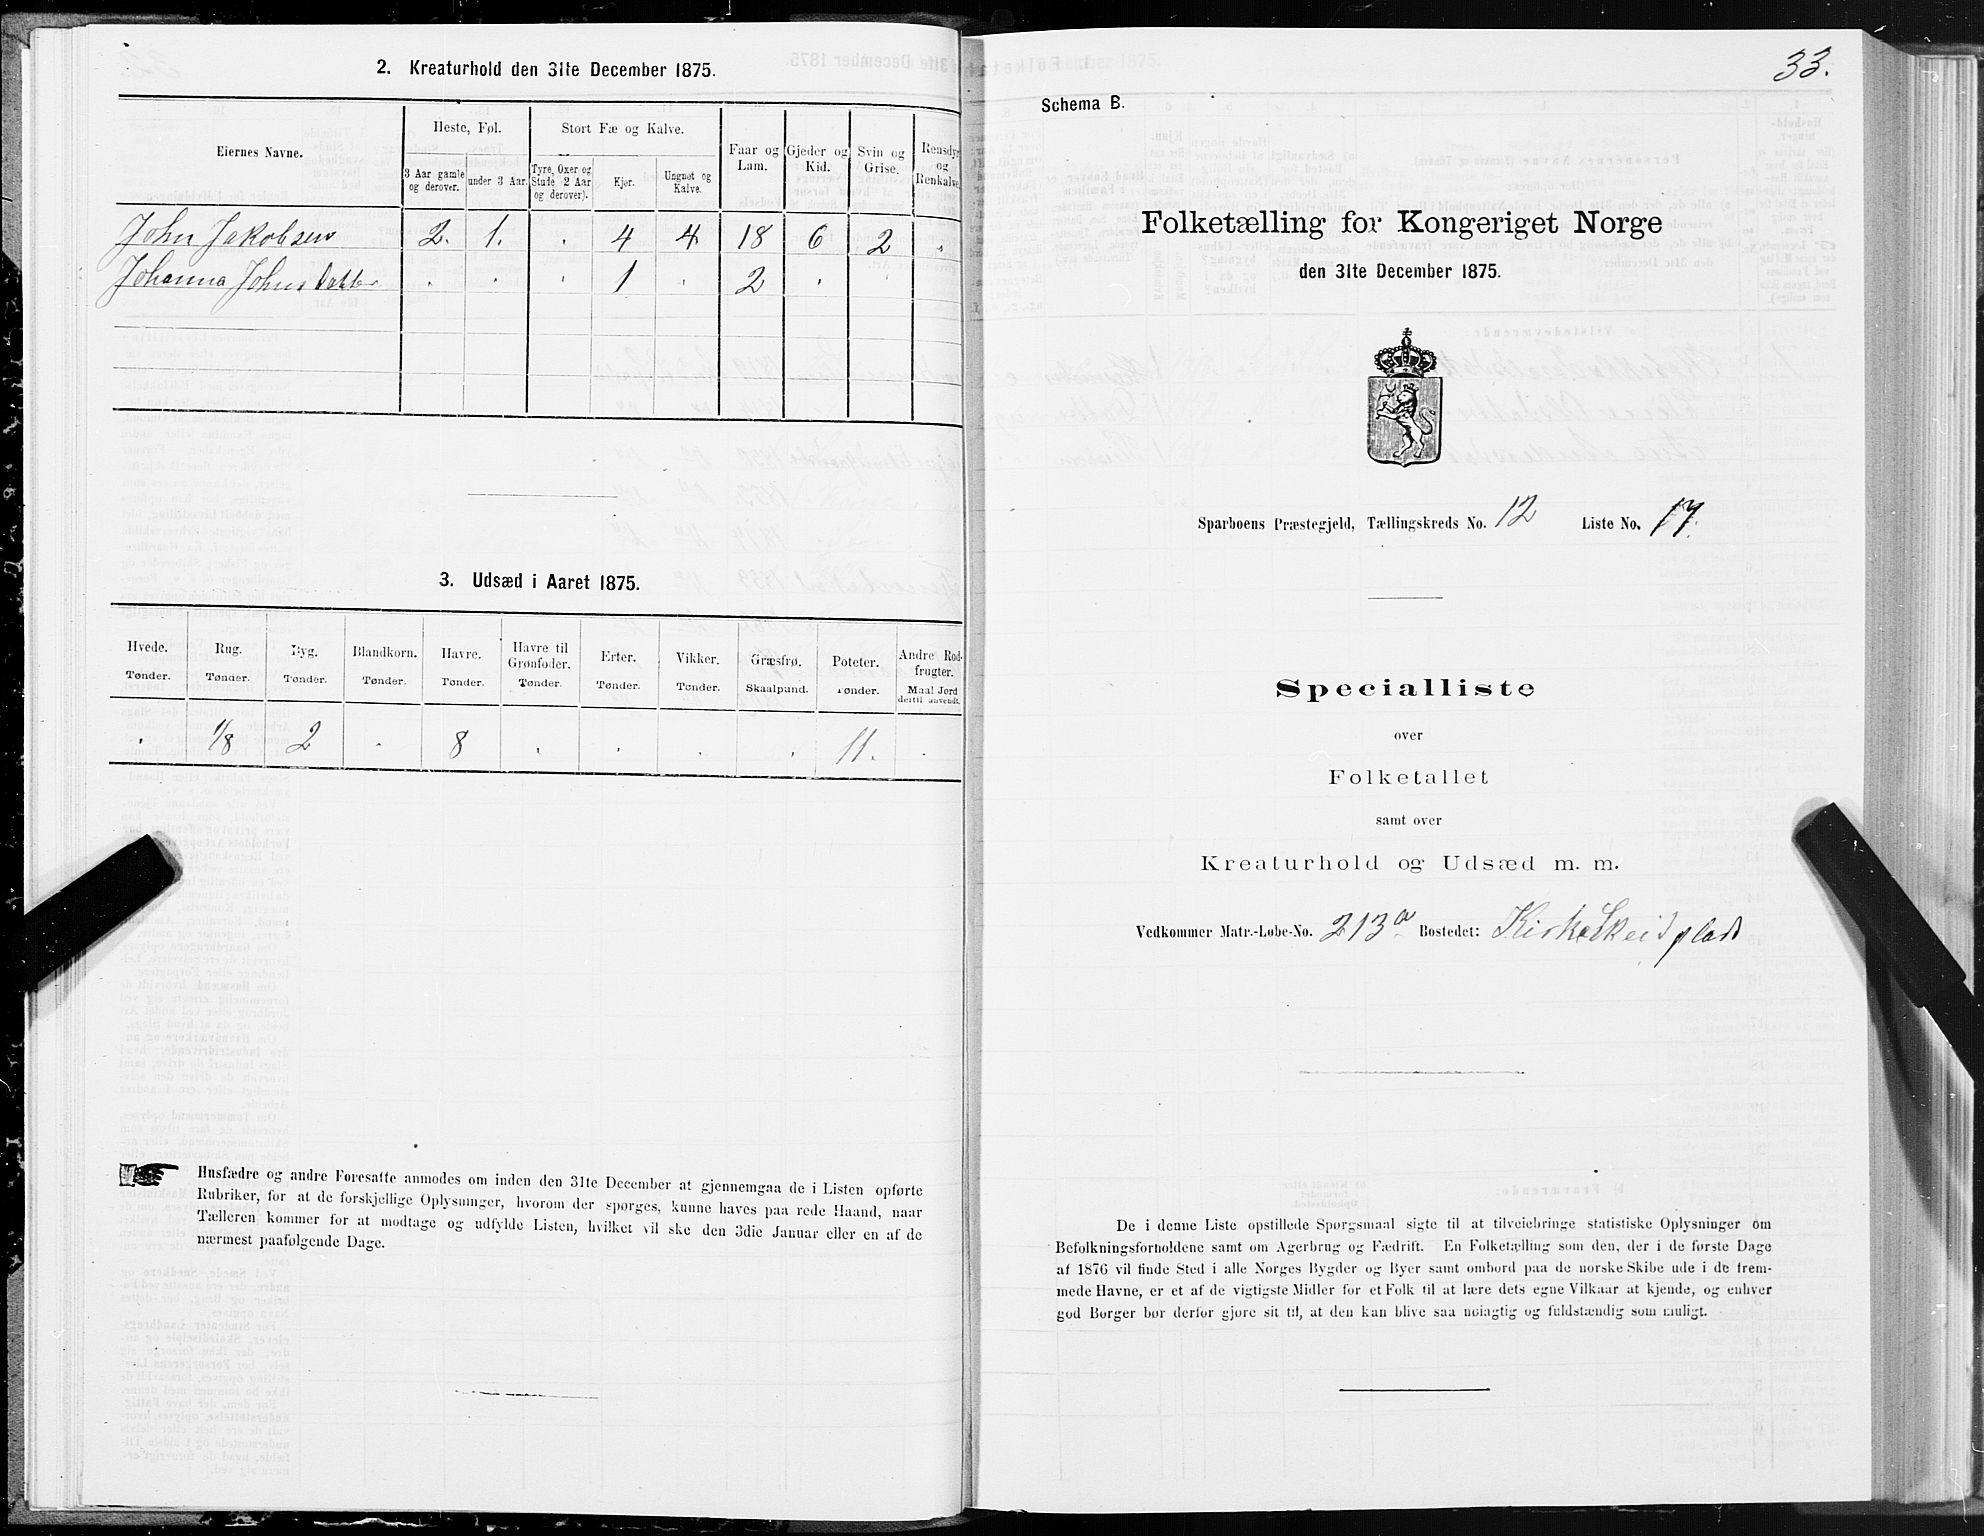 2. Kreaturhold den 31te December 1875.
Eiernes Navne.
Heste, Føl.
Stort Fæ og Kalve.
Faar og Lam.
Gjeder og Kid.
Svin og Grise.
Rensdyr og Renkalve.
3 Aar gamle og derover.
under 3 Aar.
Tyre, Oxer og Stude 2 Aar og derover).
Kjør.
Ungnøt og Kalve.
John Jakobsen 2. 1. . 4 4 18 6 2 .
Johanna Johnsdatter . . . 1 . 2 . .
3. Udsæd i Aaret 1875.
Hvede. Rug. Byg. Blandkorn. Havre. Havre til Grønfoder. Erter. Vikker. Græsfrø. Poteter. Andre Rodfrugter.
Tønder. Tønder. Tønder. Tønder. Tønder. Tønder. Tønder. Tønder. Skaalpund. Tønder. Maal Jord dertil anvendt.
. 1/8 2 . 8 . . . . 11. .
Husfædre og andre Foresatte anmodes om inden den 31te December at gjennemgaa de i Listen opførte
Rubriker, for at de forskjellige Oplysninger, hvorom der spørges, kunne haves paa rede Haand, naar
Tælleren kommer for at modtage og udfylde Listen, hvilket vil ske den 3die Januar eller en af de
nærmest paafølgende Dage.
33.
Schema B.
Folketælling for Kongeriget Norge
den 31te December 1875.
Sparboens Præstegjeld, Tællingskreds No. 12 Liste No. 17.
Specialliste
over
Folketallet
samt over
Kreaturhold og Udsæd m. m.
Vedkommer Matr.-Løbe-No. 213a Bostedet: KirkeSkeid plads
De i denne Liste opstillede Spørgsmaal sigte til at tilveiebringe statistiske Oplysninger om
Befolkningsforholdene samt om Agerbrug og Fædrift. En Folketælling som den, der i de første Dage
af 1876 vil finde Sted i alle Norges Bygder og Byer samt ombord paa de norske Skibe ude i de frem-
mede Havne, er et af de vigtigste Midler for et Folk til at lære dets egne Vilkaar at kjende, og enhver
god Borger bør derfor gjøre sit til, at den kan blive saa nøiagtig og fuldstændig som muligt.